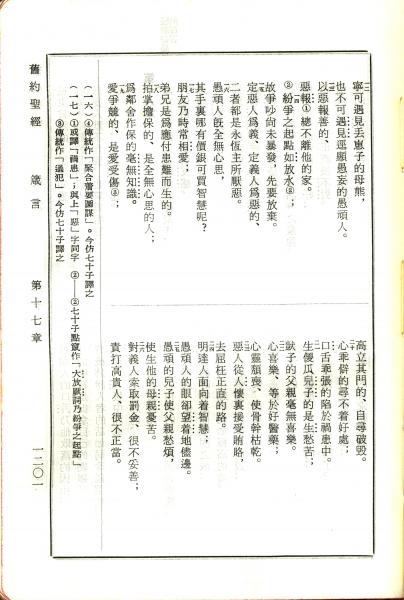 寧可遇見丟崽子的母熊，
也不可遇見逞顯愚妄的愚頑人。
以惡報善的、
惡報①總不離他的家。
②紛爭之起點如放水②；
故爭吵尚未暴發，先要放棄。
定惡人爲義、定義人爲惡的、
二者都是永恆主所厭惡。
愚頑人旣全無心思，
其手裏哪有價銀可買智慧呢？
朋友乃時常相愛；
弟兄是爲應付患難而生的。
拍掌擔保的、是全無心思的人；
爲鄰舍作保的毫無知識。
愛爭競的、是愛受傷③；
高立其門的、自尋破毀。
心乖僻的尋不着好處；
口舌乖張的陷於禍患中。
生傻瓜兒子的是生愁苦；
獃子的父親毫無喜樂。
心喜樂、等於好醫藥；
心靈頹喪、使骨幹枯乾。
惡人從人懷裏接受賄賂，
去屈枉正直的路。
明達人面向着智慧；
愚頑人的眼卻望着地儘邊。
愚頑的兒子使父親愁煩，
使生他的母親憂苦。
對義人索取罰金、很不妥善；
責打高貴人、很不正當。
（一六）④傳統作「緊合蕾要圖謀」。今仿七十子譯之
（一七）①或譯「禍患」；與上「惡」字同字　②——②七十子點竄作「大放厥詞乃紛爭之起點」
③傳統作「過犯」。今仿七十子譯之
舊約聖經　箴言　第十七章　一二〇一